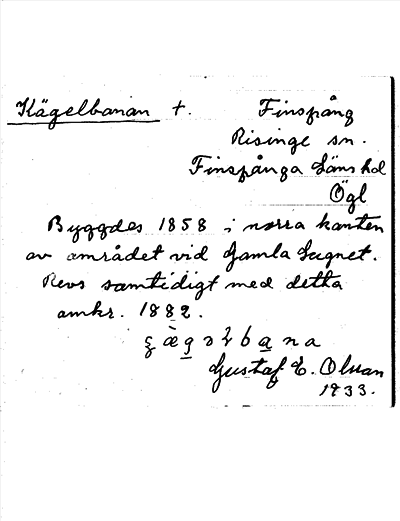 Kägelbanan †. Finspång
Risinge sn.
Finspånga läns hd
Ögl
Byggdes 1858 i norra kanten
av området vid Gamla Lugnet.
Revs samtidigt med detta
omkr. 1882.
Gustaf E. Olsson
1933.